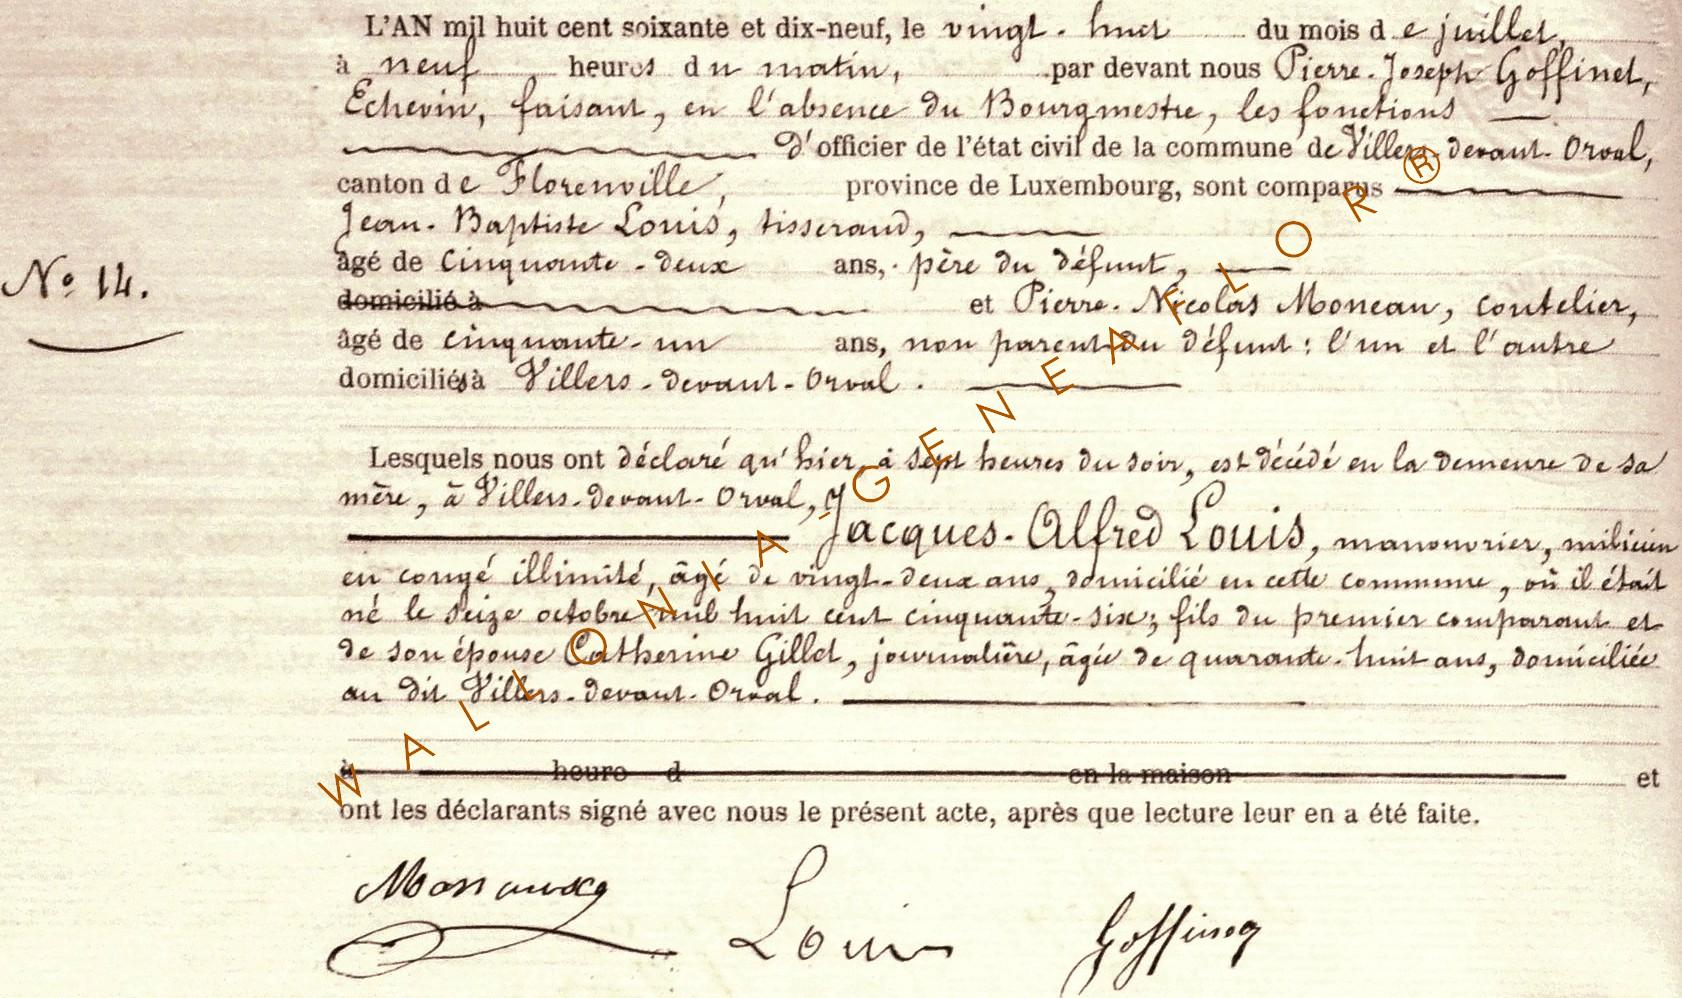 L'AN mil huit cent soixante et dix-neuf, le vingt-huit du mois de juillet,
à neuf heures du matin, par devant nous Pierre-Joseph Goffinet,
Echevin, faisant, en l'absence du Bourgmestre, les fonctions
d'officier de l'état civil de la commune de Villers-devant-Orval,
canton de Florenville, province de Luxembourg, sont comparus
Jean-Baptiste Louis, tisserand,
âgé de cinquante-deux ans, père du défunt,
N° 14.
domicilié à et Pierre-Nicolas Moneau, coutelier,
âgé de cinquante-un ans, non parent du défunt: l'un et l'autre
domiciliés à Villers-devant-Orval.
Lesquels nous ont déclaré qu'hier, à sept heures du soir, est décédé en la demeure de sa
mère, à Villers-devant-Orval,
Jacques-Alfred Louis, manouvrier, milicien
en congé illimité, âgé de vingt-deux ans, domicilié en cette commune, où il était
né le seize octobre mil huit cent cinquante-six; fils du premier comparant et
de son épouse Catherine Gillet, journalière, âgée de quarante-huit ans, domiciliée
au dit Villers-devant-Orval.
à heure d en la maison et
ont les déclarants signé avec nous le présent acte, après que lecture leur en a été faite.
Louis Goffinet
WALLONIA-GENEAFLOR®